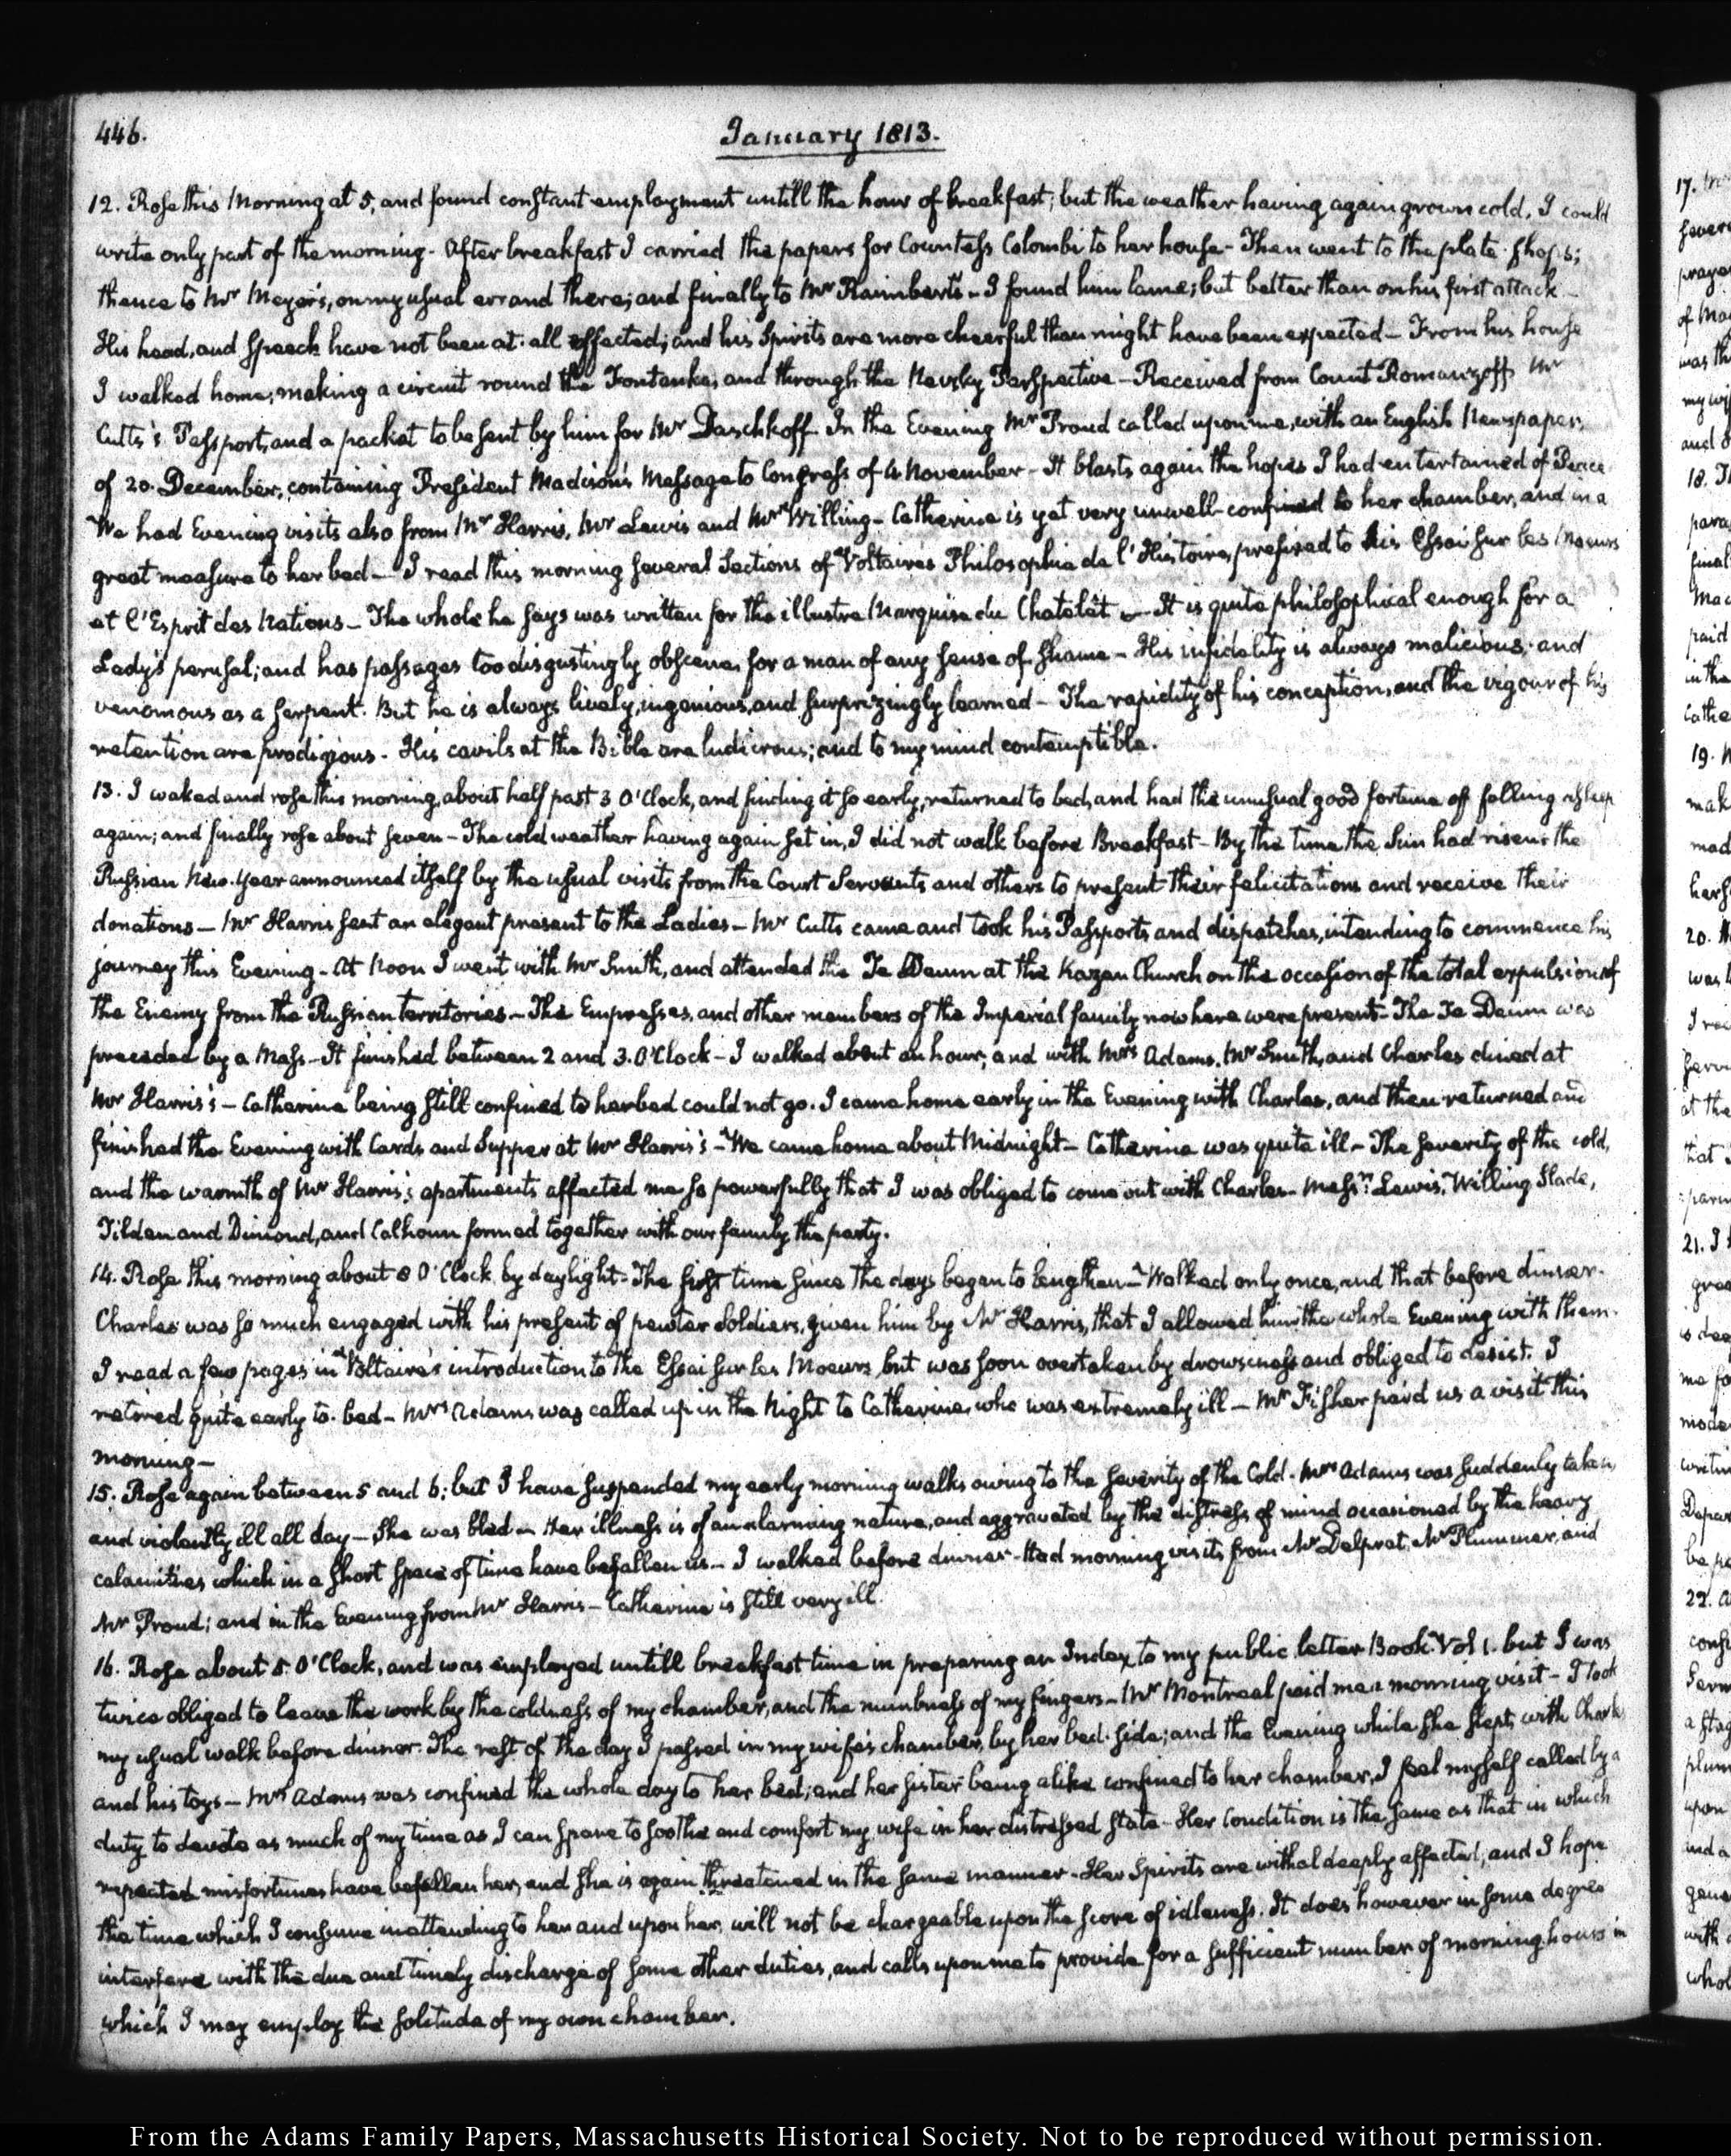 446.
January 1813.
12. Rose this Morning at 5, and found constant employment untill the hour of breakfast; but the weather having again grown cold, I could
write only part of the morning - After breakfast I carried the papers for Countess Colombi to her house - Then went to the plate-shops;
thence to Mr Meyer's, on my usual errand there; and finally to Mr Raimbert's - I found him lame; but better than on his first attack -
His head, and speech have not been at all affected; and his Spirits are more cheerful than might have been expected - From his house
I walked home, making a circuit round the Fontanka, and through the Nevsky Perspective - Received from Count Romanzoff Mr
Cutts's Passport, and a packet to be sent by him for Mr Daschkoff. In the Evening Mr Proud called upon me, with an English Newspaper,
of 20. December, containing President Madison's Message to Congress of 4 November - It blasts again the hopes I had entertained of Peace
We had Evening visits also from Mr Harris, Mr Lewis and Mr Willing - Catherine is yet very unwell confined to her chamber, and in a
great measure to her bed - I read this morning several Sections of Voltaire's Philosophie de l'Histoire, prefixed to his Essai sur les Moeurs
et l'Esprit des Nations - The whole he says was written for the illustre Marquise du Chatelêt - It is quite philosophical enough for a
Lady's perusal; and has passages too disgustingly obscene, for a man of any sense of shame - His infidelity is always malicious, and
venomous as a serpent. But he is always lively, ingenious, and surprizingly learned - The rapidity of his conception, and the vigour of his
retention are prodigious - His cavils at the Bible are ludicrous; and to my mind contemptible.
13. I waked and rose this morning, about half past 3 O'Clock, and finding it so early, returned to bed, and had the unusual good fortune of falling asleep
again; and finally rose about seven - The cold weather having again set in, I did not walk before Breakfast - By the time the Sun had risen the
Russian New-Year announced itself by the usual visits from the Court Servants and others to present their felicitations and receive their
donations - Mr Harris sent an elegant present to the Ladies - Mr Cutts came and took his Passports and dispatches, intending to commence his
journey this Evening - At Noon I went with Mr Smith, and attended the Te Deum at the Kazan Church on the occasion of the total expulsion of
the Enemy from the Russian territories - The Empresses, and other members of the Imperial family now here were present - The Te Deum was
preceded by a Mass - It finished between 2 and 3. O'Clock - I walked about an hour; and with Mrs Adams, Mr Smith, and Charles dined at
Mr Harris's - Catherine being still confined to her bed could not go. I came home early in the Evening with Charles, and then returned and
finished the Evening with Cards and Supper at Mr Harris's - We came home about Midnight - Catherine was quite ill - The severity of the cold,
and the warmth of Mr Harris's apartments affected me so powerfully that I was obliged to come out with Charles - Messrs Lewis, Willing Slade,
Tilden and Dimond, and Calhoun formed together with our family the party.
14. Rose this morning about 8 O'Clock, by daylight - The first time since the days began to lengthen - Walked only once, and that before dinner.
Charles was so much engaged with his present of pewter Soldiers, given him by Mr Harris, that I allowed him the whole Evening with them.
I read a few pages in Voltaire's introduction to the Essai sur les Moeurs but was soon overtaken by drowsiness and obliged to desist. I
retired quite early to bed - Mrs Adams was called up in the Night to Catherine, who was extremely ill - Mr Fisher paid us a visit this
morning -
15. Rose again between 5 and 6; but I have suspended my early morning walks owing to the severity of the Cold - Mrs Adams was suddenly taken,
and violently ill all day - She was bled - Her illness is of an alarming nature, and aggravated by the distress of mind occasioned by the heavy
calamities which in a short space of time have befallen us - I walked before dinner - Had morning visits from Mr Delprat, Mr Plummer, and
Mr Proud; and in the Evening from Mr Harris - Catherine is still very ill.
16. Rose about 5. O'Clock, and was employed untill breakfast time in preparing an Index to my public letter Book Vol 1. but I was
twice obliged to leave the work by the coldness of my chamber, and the numbness of my fingers - Mr Montreal paid me a morning visit - I took
my usual walk before dinner. The rest of the day I passed in my wife's chamber, by her bed-side; and the Evening while she slept, with Charles
and his toys - Mrs Adams was confined the whole day to her bed; and her sister being alike confined to her chamber, I feel myself called by a
duty to devote as much of my time as I can spare to soothe and comfort my wife in her distressed state - Her Condition is the same as that in which
repeated misfortunes have befallen her, and she is again threatened in the same manner - Her Spirits are withal deeply affected, and I hope
the time which I consume in attending to her and upon her, will not be chargeable upon the score of idleness. It does however in some degree
interfere with the due and timely discharge of some other duties, and calls upon me to provide for a sufficient number of morning hours in
which I may employ the solitude of my own chamber.
From the Adams Family Papers, Massachusetts Historical Society. Not to be reproduced without permission.